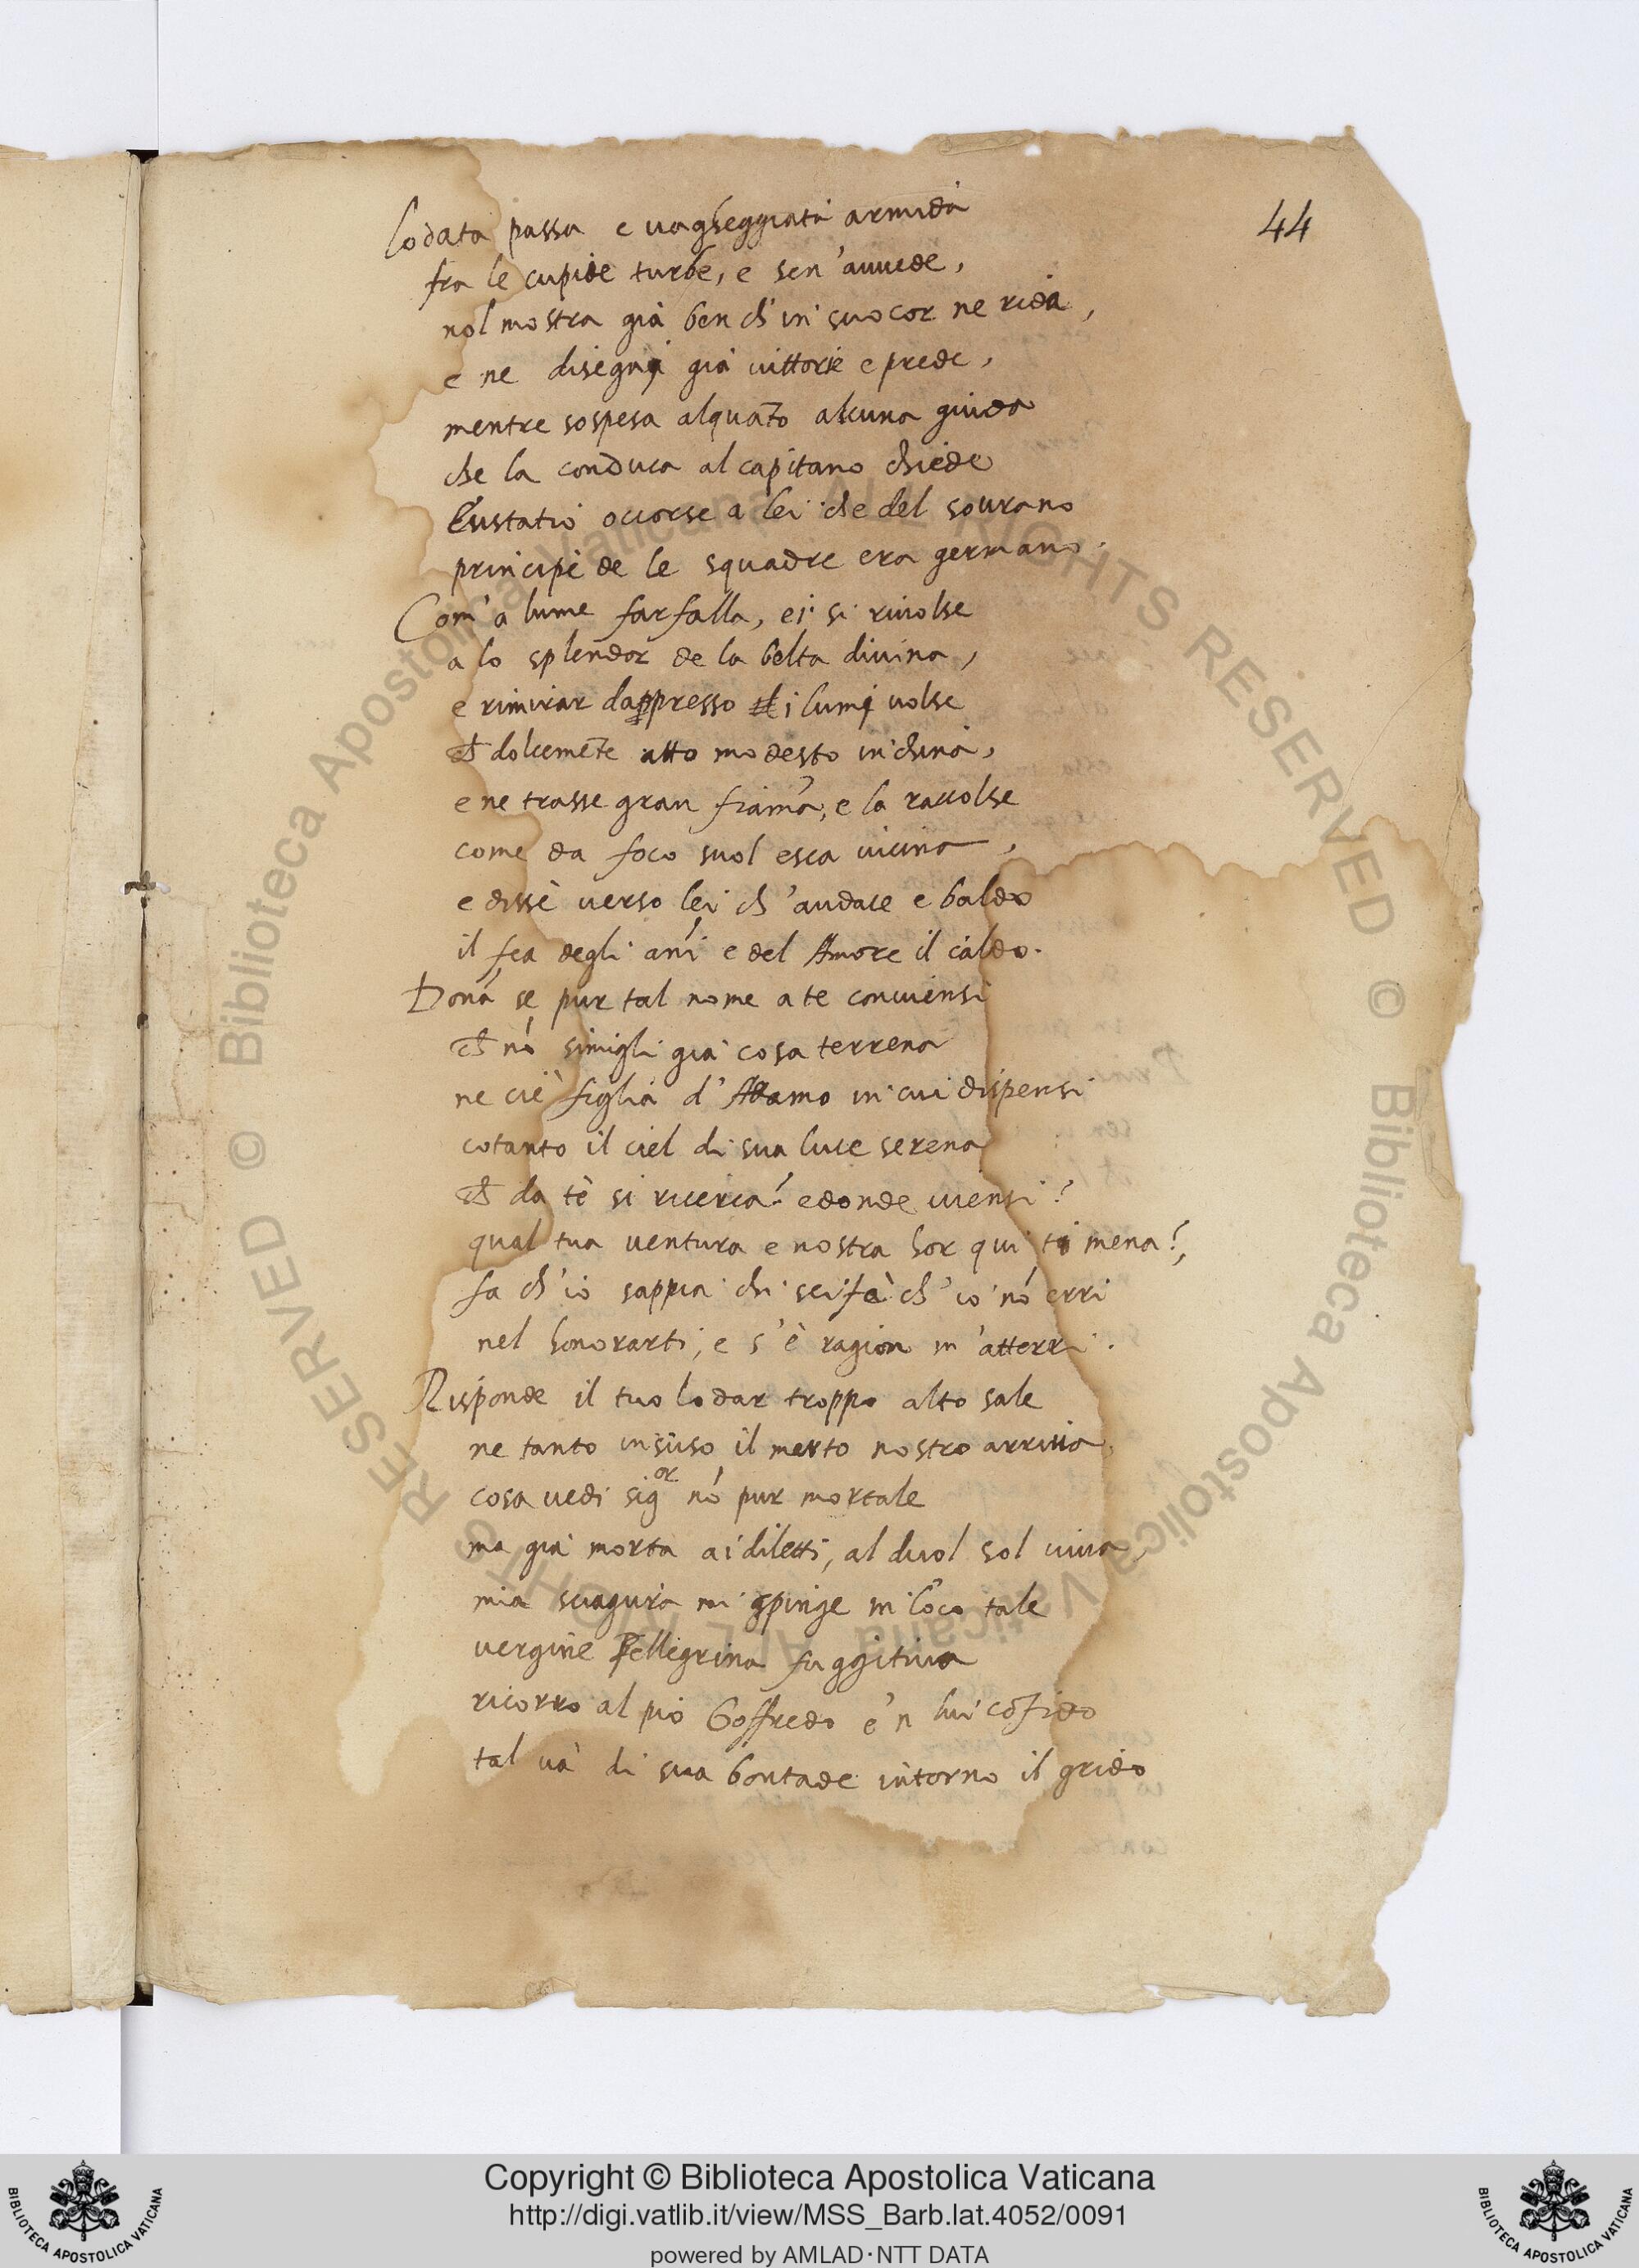 44
lodata passa e uagheggiata armida
fra le cupide turbe, e sen'auuede,
nol mostra già ben ch'in suo cor ne rida,
e ne disegni già uittorie e prede,
mentre sospesa alquāto alcuna guida
che la conduca al capitano chiede
Eustatio occorse a lei che del sourano
principe de le squadre era germano.
Com'a lume farfalla, ei si riuolse
a lo splendor de la belta diuina,
e rimirar dappresso i lumi uolse
ch dolcemēte atto modesto inchina,
e ne trasse gran fiām̄a, e la raccolse
come da foco suol esca uicina,
e disse uerso lei ch'audace e baldo
il fea degli anī e del Amore il caldo.
Donā se pur tal nome a te conuiensi
ch nō simigli già cosa terrena
ne ciè figlia d'Adamo in cui dispensi
cotanto il ciel di sua luce serena
ch da te si ricerca? e donde uiensi?
qual tua uentura e nostra hor qui ti mena?,
fa ch'io sappia chi sei fa ch'io nō erri
nel honorarti, e s'è ragion m'atterri.
Risponde il tuo lodar troppo alto sale
ne tanto in suso il merto nostro arriua,
cosa uedi sig.or nō pur mortale
ma già morta a i diletti, al duol sol uiua,
mia sciagura mi spinge in loco tale
uergine Pellegrina fuggitiua
ricorro al pio Goffredo e 'n lui cōfido
tal uà di sua bontade intorno il grido
© Biblioteca Apostolica Vaticana ALL RIGHTS RESERVED © Biblioteca Apostolica Vaticana ALL RIGHTS RESERVED
Copyright © Biblioteca Apostolica Vaticana
http://digi.vatlib.it/view/MSS_Barb.lat.4052/0091
powered by AMLAD·NTT DATA
BIBLIOTECA APOSTOLICA VATICANA
BIBLIOTECA APOSTOLICA VATICANA